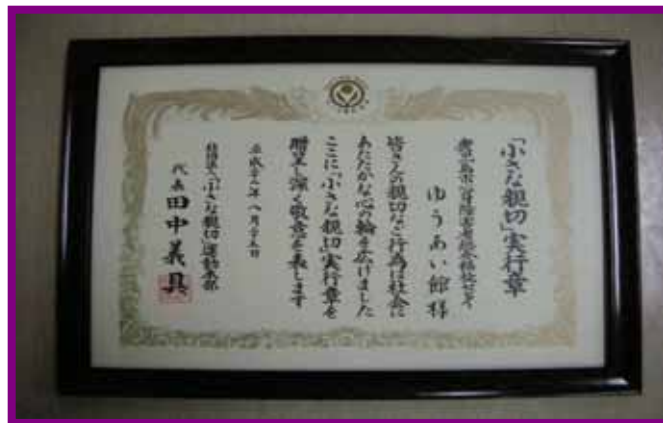 「小さな親切」実行章
ゆうあい館様
皆さんの親切なご行為は社会に
あたたかな心の輪を広げました
ここに「小さな親切」実行章を
贈呈し深く敬意を表します
「小さな親切」運動本部
代表 田中義具